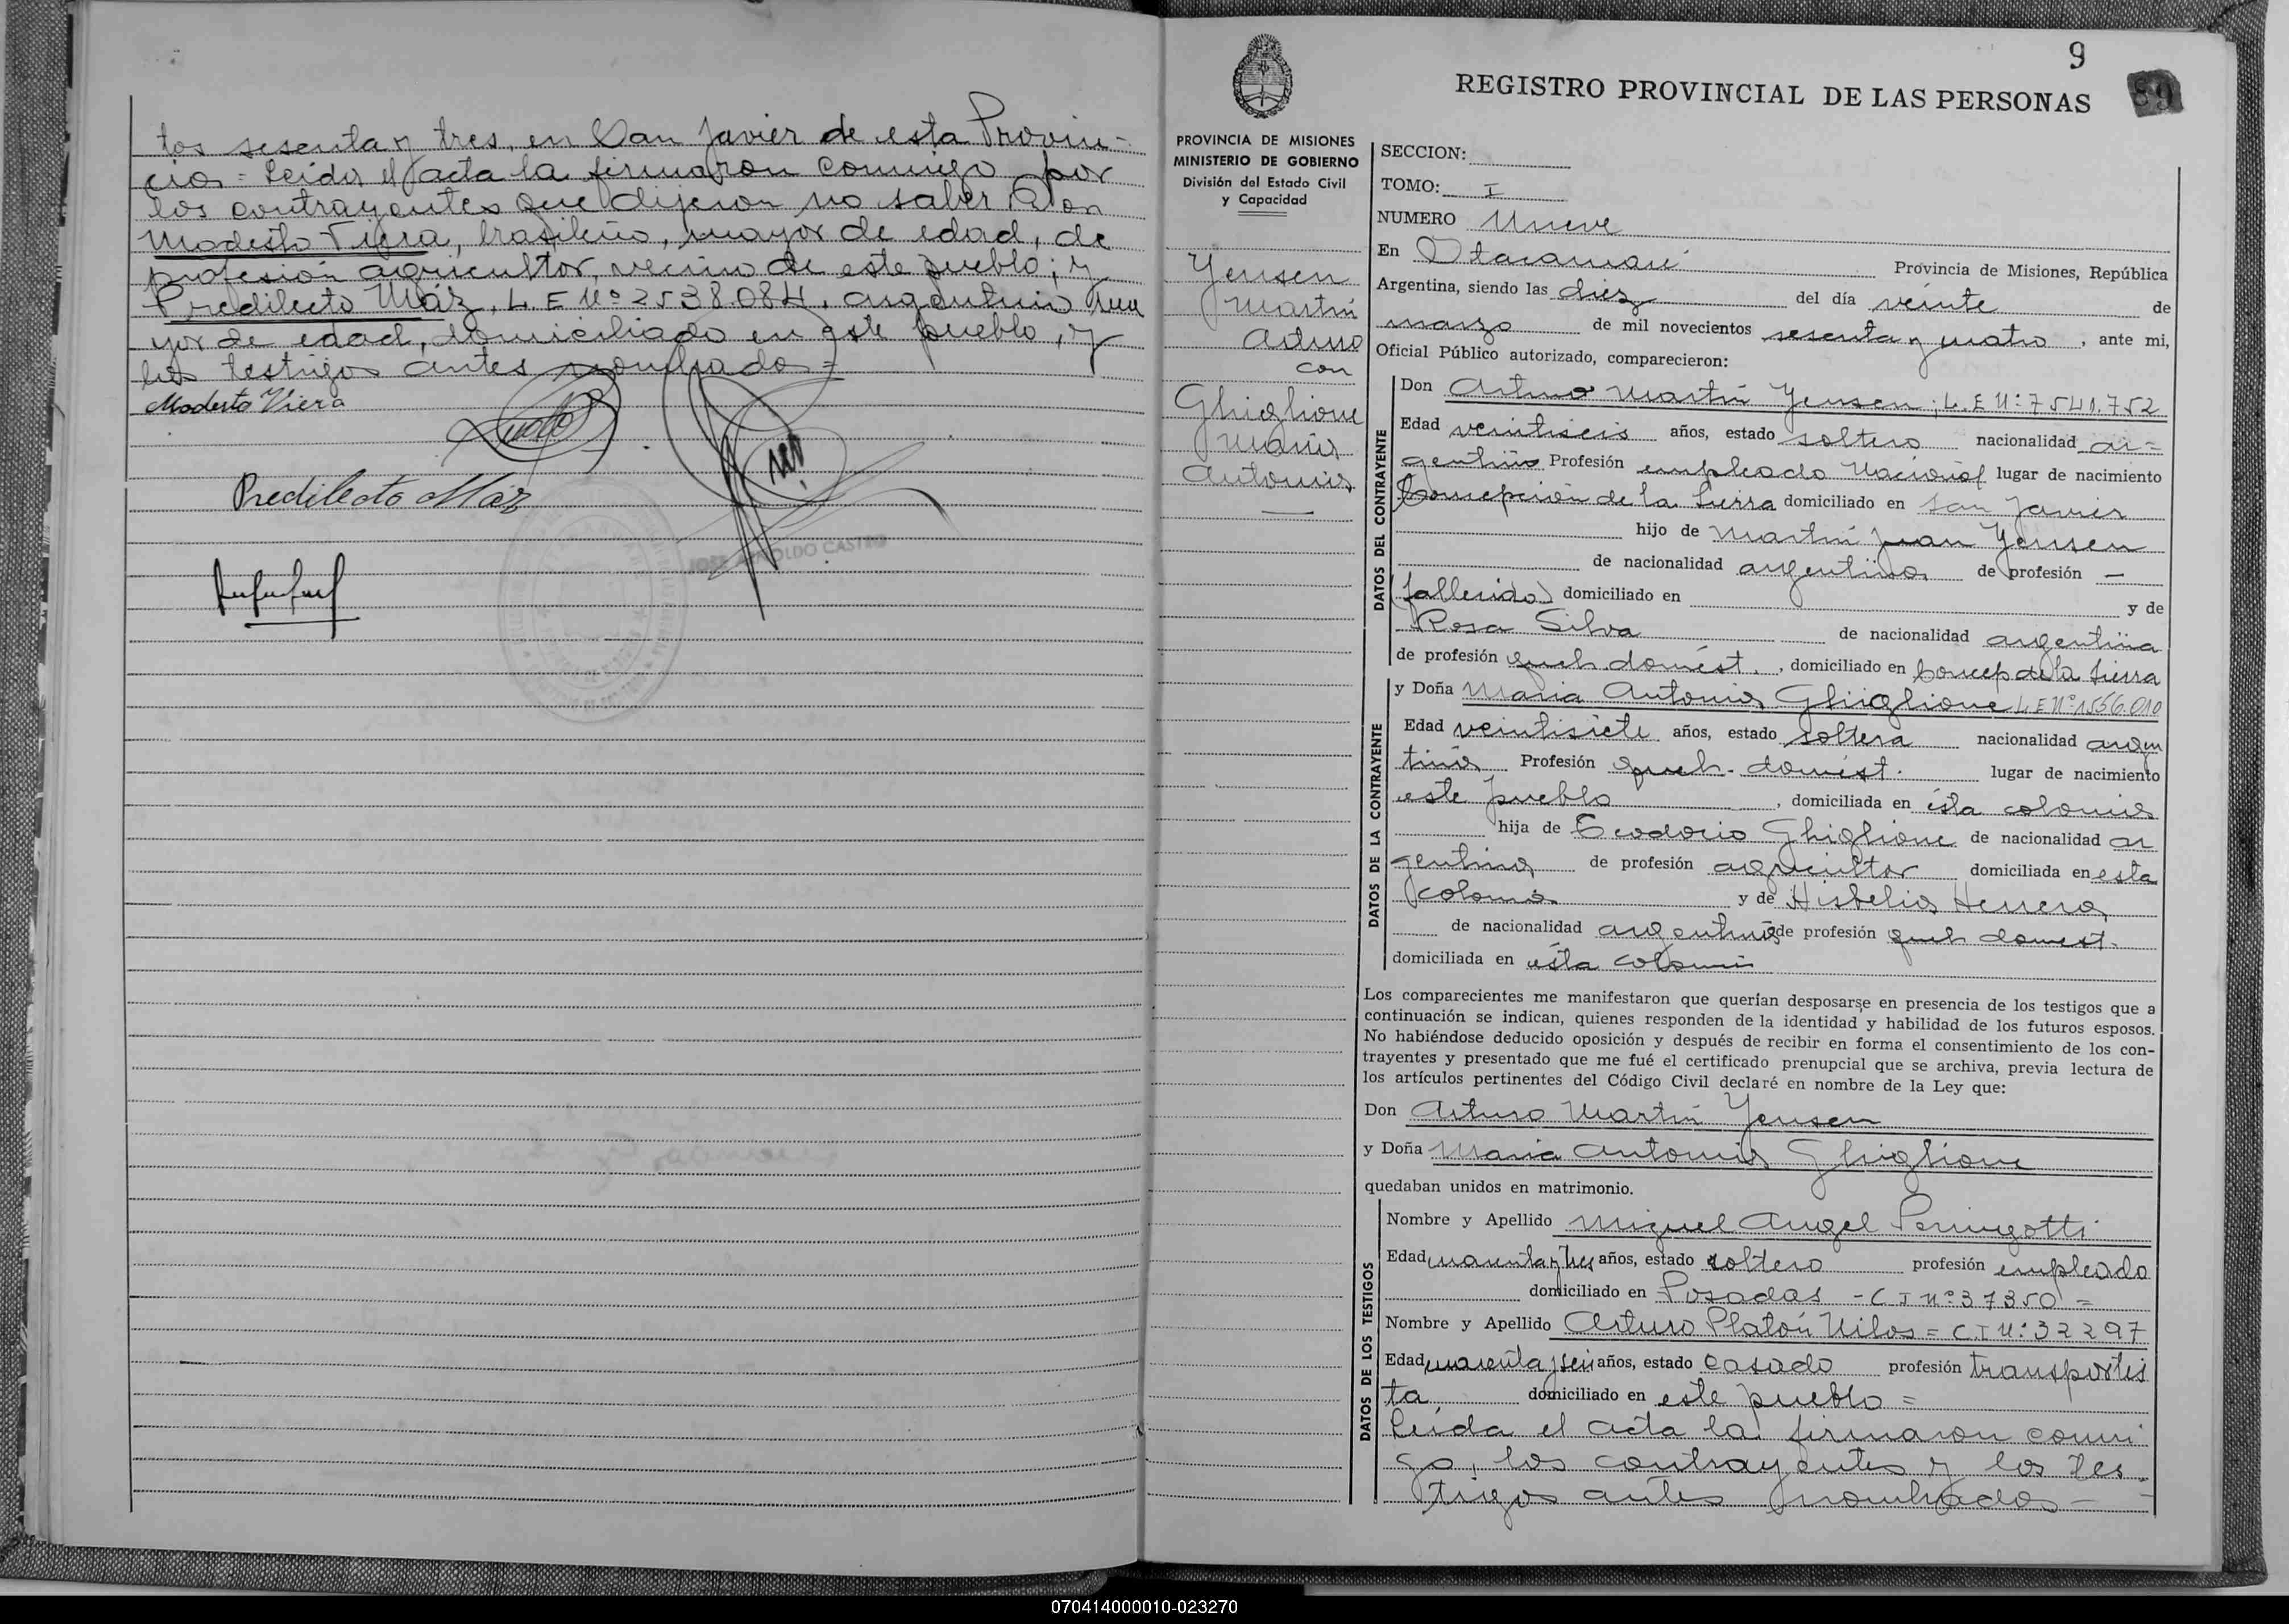 tos sesenta y tres, en San Javier de esta Provin-
cia = Leida el acta la firmaron conmigo por
los contrayentes que dijeron no saber, Don
Modesto Viera, brasileño, mayor de edad, de
profesión agricultor, vecino de este pueblo; y
Predilecto Máz, L. E Nº 2538.084, argentino ma
yor de edad, domiciliado en este pueblo, y
los testigos antes nombrados =
Modesto Viera
Predilecto Máz
JOSE ARNOLDO CASTRO
9
89
REGISTRO PROVINCIAL DE LAS PERSONAS
PROVINCIA DE MISIONES
MINISTERIO DE GOBIERNO
División del Estado Civil
y Capacidad
Yensen
Martín
Arturo
con
Ghiglione
María
Antonia
SECCION:
TOMO: I
NUMERO Nueve
En Itacaruaré Provincia de Misiones, República
Argentina, siendo las diez del día veinte de
marzo de mil novecientos sesenta y cuatro, ante mi,
Oficial Público autorizado, comparecieron:
DATOS DEL CONTRAYENTE
Don Arturo Martín Yensen; L.E Nº 7541.752
Edad veintiseis años, estado soltero nacionalidad ar=
gentino Profesión empleado Nacional lugar de nacimiento
Concepción de la Sierra domiciliado en San Javier
hijo de Martín Juan Yensen
de nacionalidad argentina de profesión —
(fallecido) domiciliado en y de
Rosa Silva de nacionalidad argentina
de profesión queh. domést. , domiciliado en Concep de la Sierra
DATOS DE LA CONTRAYENTE
y Doña María Antonia Ghiglione L E Nº 1556.010
Edad veintisiete años, estado soltera nacionalidad argen
tina Profesión queh. domést. lugar de nacimiento
este pueblo , domiciliada en ésta colonia
hija de Teodorio Ghiglione de nacionalidad ar
gentina de profesión agricultor domiciliada en esta
colonia y de Hisbelia Herrera
de nacionalidad argentina de profesión queh domest.
domiciliada en ésta colonia
Los comparecientes me manifestaron que querían desposarse en presencia de los testigos que a
continuación se indican, quienes responden de la identidad y habilidad de los futuros esposos.
No habiéndose deducido oposición y después de recibir en forma el consentimiento de los con-
trayentes y presentado que me fué el certificado prenupcial que se archiva, previa lectura de
los artículos pertinentes del Código Civil declaré en nombre de la Ley que:
Don Arturo Martín Yensen
y Doña María Antonia Ghiglione
quedaban unidos en matrimonio.
DATOS DE LOS TESTIGOS
Nombre y Apellido Miguel Angel Peringotti
Edad cuarenta y tres años, estado soltero profesión empleado
domiciliado en Posadas - C I Nº 37350 =
Nombre y Apellido Arturo Platón Nilos = C.I Nº 32297
Edad cuarenta y seis años, estado casado profesión transportis
ta domiciliado en este pueblo =
Leida el acta la firmaron conmi
go, los contrayentes y los tes-
tigos antes nombrados —
070414000010-023270